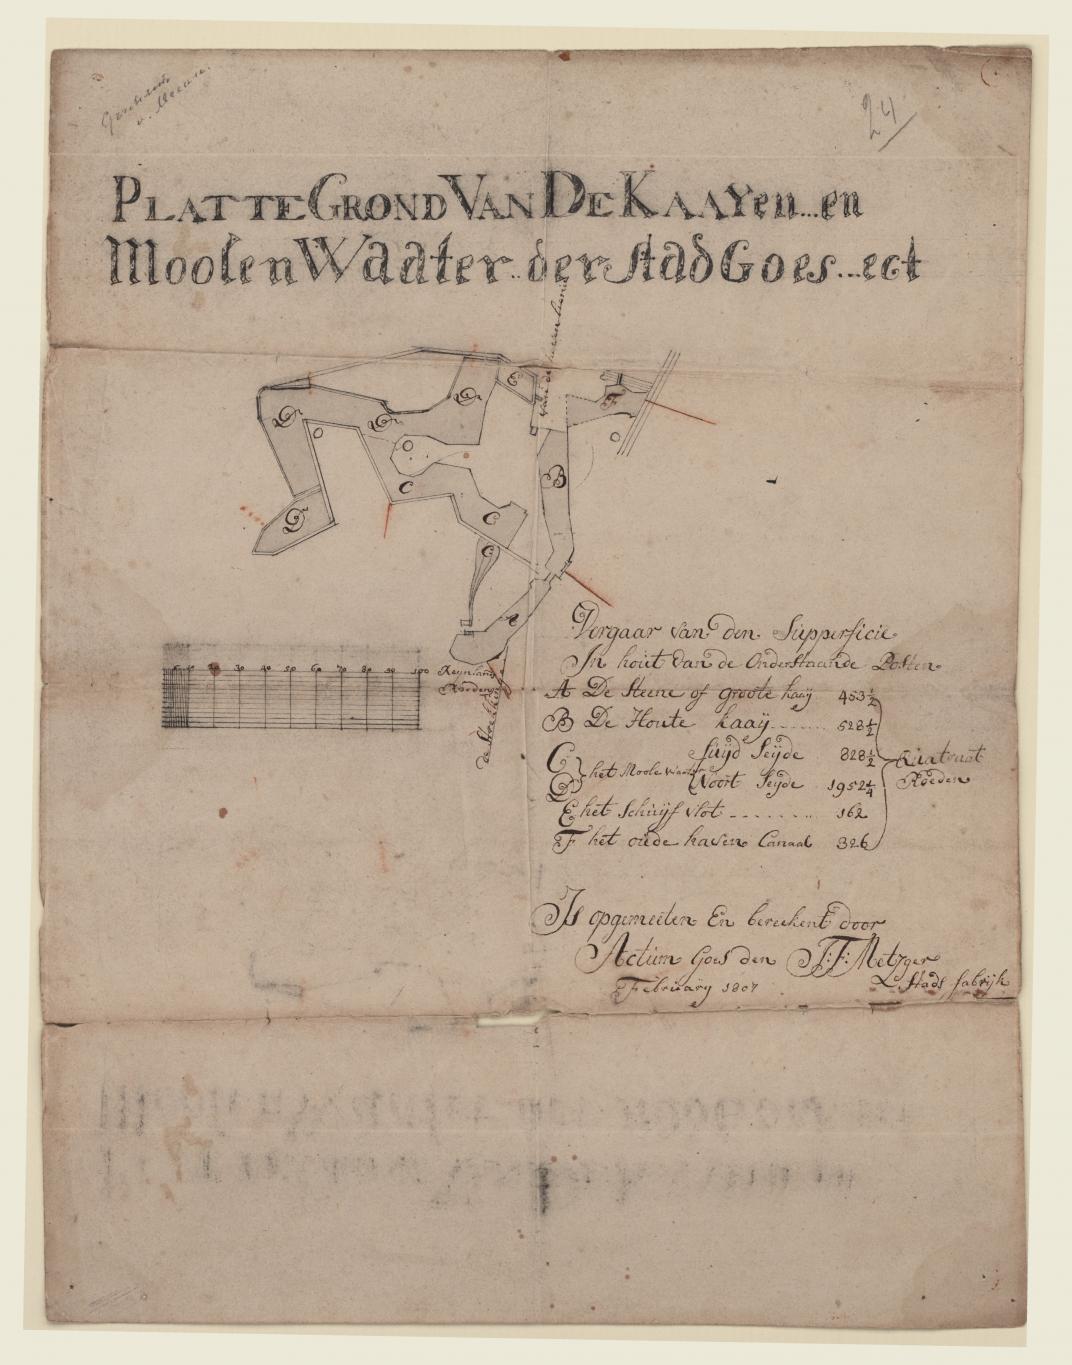 24
PLATTE GROND VAN DE KAAYen...en
Moolen Waater..der stad Goes...ect
E
F
D
D
D
B
C
C
C
D
A
10 20 30 40 50 60 70 80 90 100 Reynland
Roeden
Vergaar van den Supperficie
In hout van de Onderstaande Posten
A De Steene of groote kaaij 453½
B De Houte kaaij ...... 528½
C het Moole Waater Suijd Seijde 828½
D Noort Seijde 1952¼
Quatraat Roeden
E het schuijf vlot ........ 162
F het oude haven Canaal 326
Is opgemeeten En bereekent door
Actum Goes den J:F: Metzger
Februarij 1807 Stads fabrijk